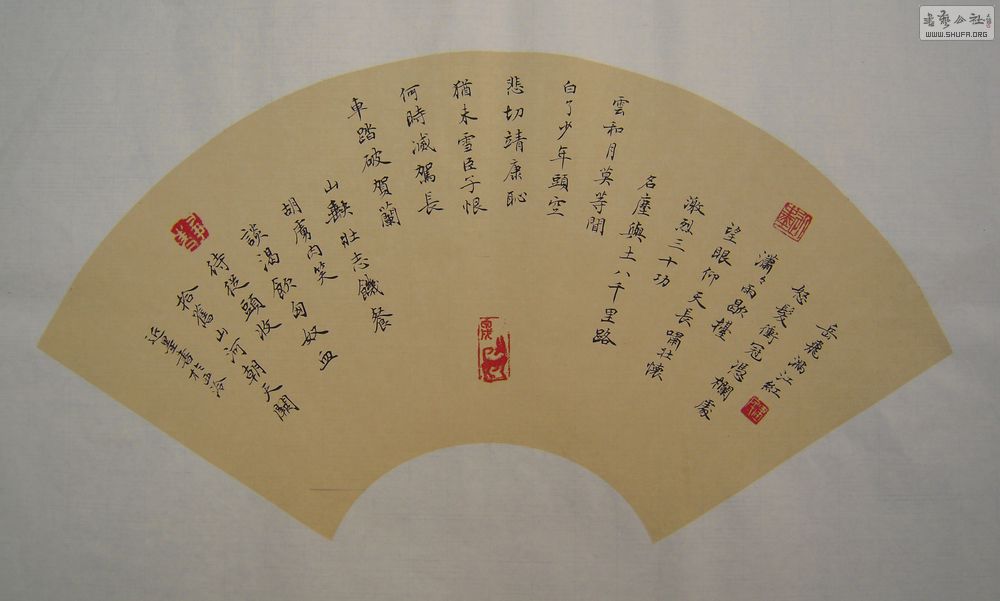 岳飛滿江紅
怒髮衝冠憑欄處
瀟々雨歇擡
望眼仰天長嘯壯懷
激烈三十功
名塵與土八千里路
雲和月莫等間
白了少年頭空
悲切靖康恥
猶未雪臣子恨
何時滅駕長
車踏破賀蘭
山缺壯志饑餐
胡虜肉笑
談渴飲匈奴血
待從頭收
拾舊山河朝天闕
書於西泠
书艺公社
WWW.SHUFA.ORG